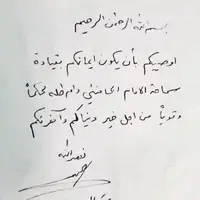 بسم الله الرحمن الرحيم
اوصيكم بأن يكون ايمانكم بقيادة
سماحة الامام الخامنئي دام ظله محكماً
وقوياً من اجل خير دنياكم وآخرتكم
نصر الله